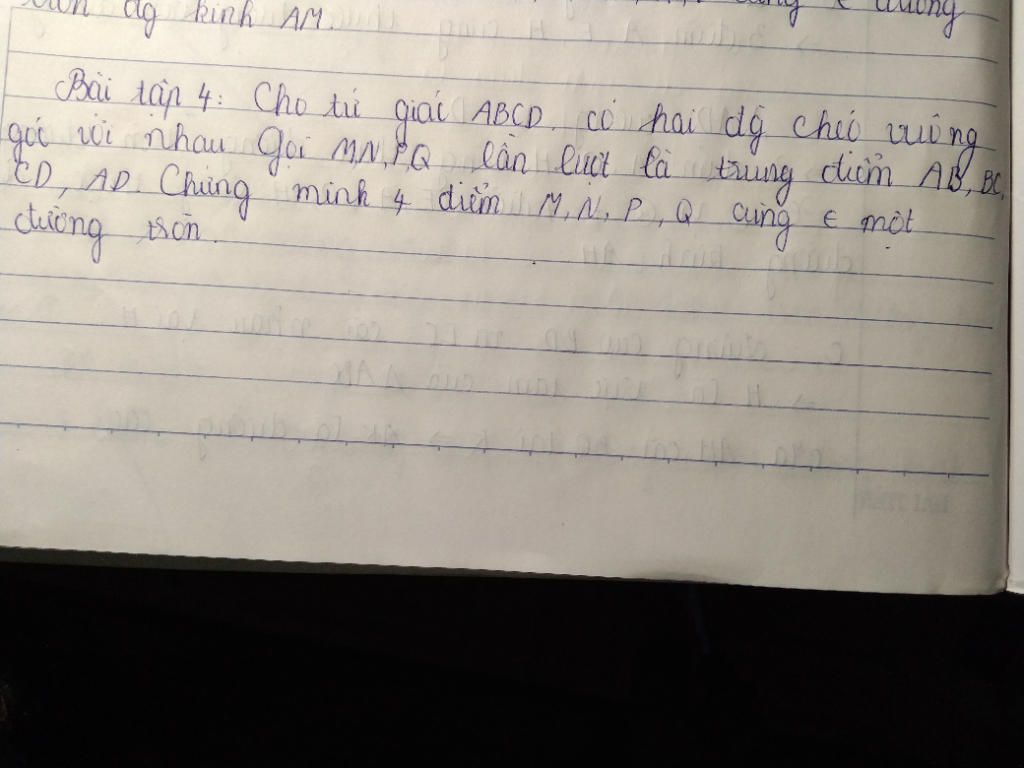 đg kính AM.
Bài tập 4: Cho tứ giác ABCD. có hai đg chéo vuông
góc với nhau Gọi M,N,P,Q lần lượt là trung điểm AB, BC,
CD, AD. Chứng minh 4 điểm M, N, P, Q cùng ∈ một
đường tròn.